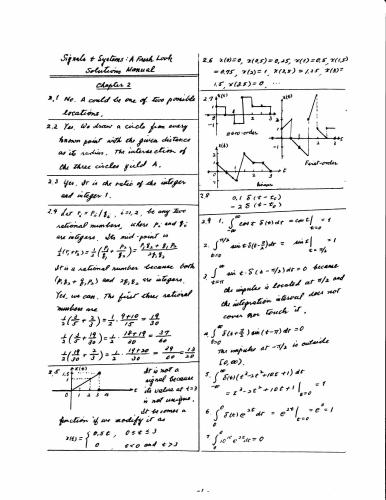 Signals & Systems: A Fresh Look
Solutions Manual
Chapter 2
2.1 No. A could be one of two possible
locations.
2.2 Yes. We draw a circle from every
known point with the given distance
as its radius. The intersection of
the three circles yield A.
2.3 Yes. It is the ratio of the integer
and integer 1.
2.4 Let r_i = p_i/q_i, i=1,2, be any two
rational numbers, where p_i and q_i
are integers. Its mid-point is
1/2(r_1+r_2) = 1/2(p_1/q_1 + p_2/q_2) = (p_1q_2 + q_1p_2)/2q_1q_2
It is a rational number because both
(p_1q_2 + q_1p_2) and 2q_1q_2 are integers.
Yes, we can. The first three rational
numbers are
1/2(3/5 + 2/3) = 1/2 · (9+10)/15 = 19/30
1/2(3/5 + 19/30) = 1/2 · (18+19)/30 = 37/60
1/2(19/30 + 2/3) = 1/2 · (19+20)/30 = 39/60 = 13/20
2.5 1.5 x(t)
1
0 1 2 3 4 t
It is not a
signal because
its value at t=3
is not unique.
It becomes a
function if we modify it as
x(t) = { 0.5t, 0≤t≤3
0 t<0 and t>3
2.6 x(0)=0, x(0.5)=0.25, x(1)=0.5, x(1.5)
=0.75, x(2)=1, x(2.5)=1.25, x(3)=
1.5, x(3.5)=0 ...
2.7 x(t)
zero-order
x(t)
First-order
x(t)
linear
2.8 0.1 δ(t-t_0)
-2 δ(t-t_0)
2.9 1. ∫ cos t δ(t) dt = cos t| = 1
t=0
2. ∫ sin t δ(t-π/2) dt = sin t| = 1
3. ∫ sin t · δ(t-π/2) dt = 0 because
the impulse is located at π/2 and
the integration interval does not
cover nor touch it.
4. ∫ δ(t+π/2) sin(t-π) dt = 0
The impulse at -π/2 is outside
[0,∞).
5. ∫ δ(t)(t³-2t²+10t+1) dt
= t³-2t²+10t+1| = 1
t=0
6. ∫ δ(t) e^2t dt = e^2t| = e^0 = 1
t=0
7. ∫ 10^10 e^2t dt = 0
-1-